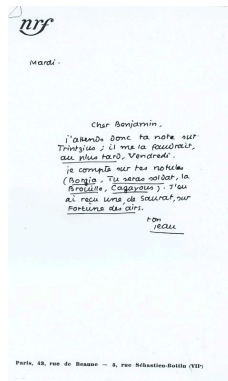 nrf
Mardi.
Cher Benjamin,
j'attends donc ta note sur
Trintzius ; il me la faudrait,
au plus tard, Vendredi.
je compte sur tes notules
(Borgia, Tu seras soldat, la
Brouille, Cagayous). J'en
ai reçu une, de Saurat, sur
Fortune des airs.
ton
Jean
Paris, 43, rue de Beaune — 5, rue Sébastien-Bottin (VIIe)